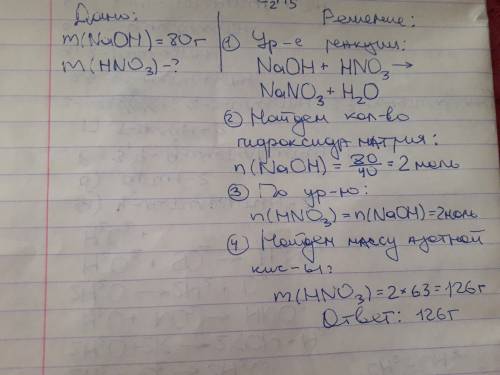 Дано:
m(NaOH)=80г
m(HNO₃)-?
Решение:
① Ур-е реакции:
NaOH + HNO₃ →
NaNO₃ + H₂O
② Найдем кол-во
гидроксида натрия:
n(NaOH) = 80/40 = 2 моль
③ По ур-ю:
n(HNO₃) = n(NaOH) = 2моль
④ Найдем массу азотной
кис-ы:
m(HNO₃) = 2*63 = 126г
Ответ: 126г